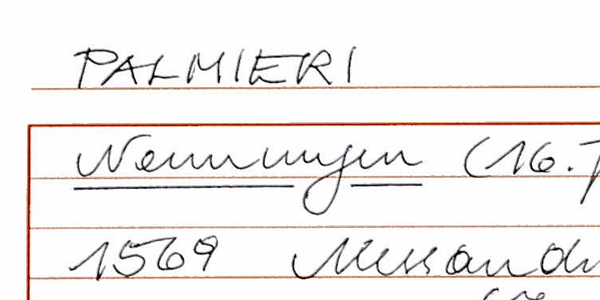 PALMIERI
Nennungen (16.
1569 Alessand